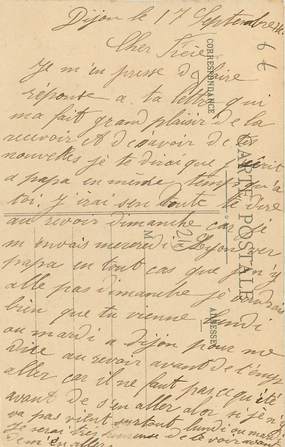 Dijon le 17 Septembre
Cher Frère
Je m'en presse de faire
reponse a ta lettre qui
ma fait grand plaisir de la
recevoir et de savoir de tes
nouvelles je te dirai que j'écrit
a papa en même temps qu'a
toi. J'irai sen doute te dire
au revoir dimanche car je
m envais mercredi
papa en tout cas que j'en y
alle pas dimanche je voudrais
bien que tu vienne lundi
ou mardi a Dijon pour me
dire au revoir avant de t'emp
aller car il ne faut pas
avant de s'en aller alor si je n'y
va pas vient surtout lundi ou mardi
Je serai très de te voir avant
de m'en aller
CARTE POSTALE
CORRESPONDANCE
ADRESSE